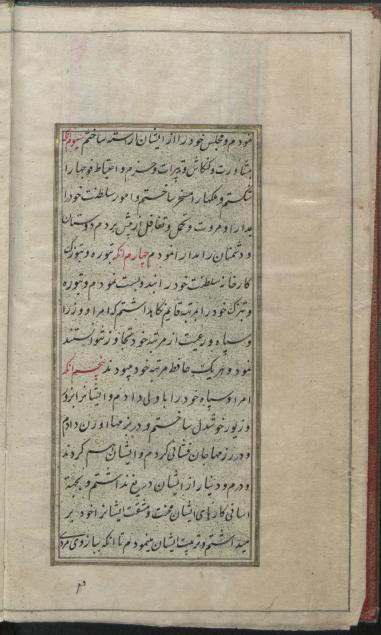 نمودم و مجلس خود را از ایشان آراسته ساختم سیوم آنکه
بمشاورت و کنکاش و تدبیرات و حزم و احتیاط فوجها را
شکستم و ملکها را مسخر ساختم و امور سلطنت خود را
بمدارا و مروت و تحمل و تغافل از پیش بردم و دوستان
و دشمنان را مدارا نمودم چهارم آنکه بتوره و بتوزک
کارخانه سلطنت خود را بند و بست نمودم و بتوره
و تزک خود را بمرتبه قایم نگاهداشتم که امرا و وزرا
و سپاه و رعیت از مرتبه خود تجاوز نتوانستند
نمود و هر یک حافظ مرتبه خود میبودند پنجم آنکه
امرا و سپاه خود را با و دلی دادم و ایشانرا بزر
و زیور خوشدل ساختم و در بزمها اوزن دادم
و در رزمها جان فشانی کردم و ایشان هم کردند
و درم و دینار از ایشان دریغ نداشتم و بجهة
آسانی کارهای ایشان محنت و مشقت ایشانرا بخود بر
میداشتم و تربیت ایشان مینمودم تا آنکه ببازوی مردی